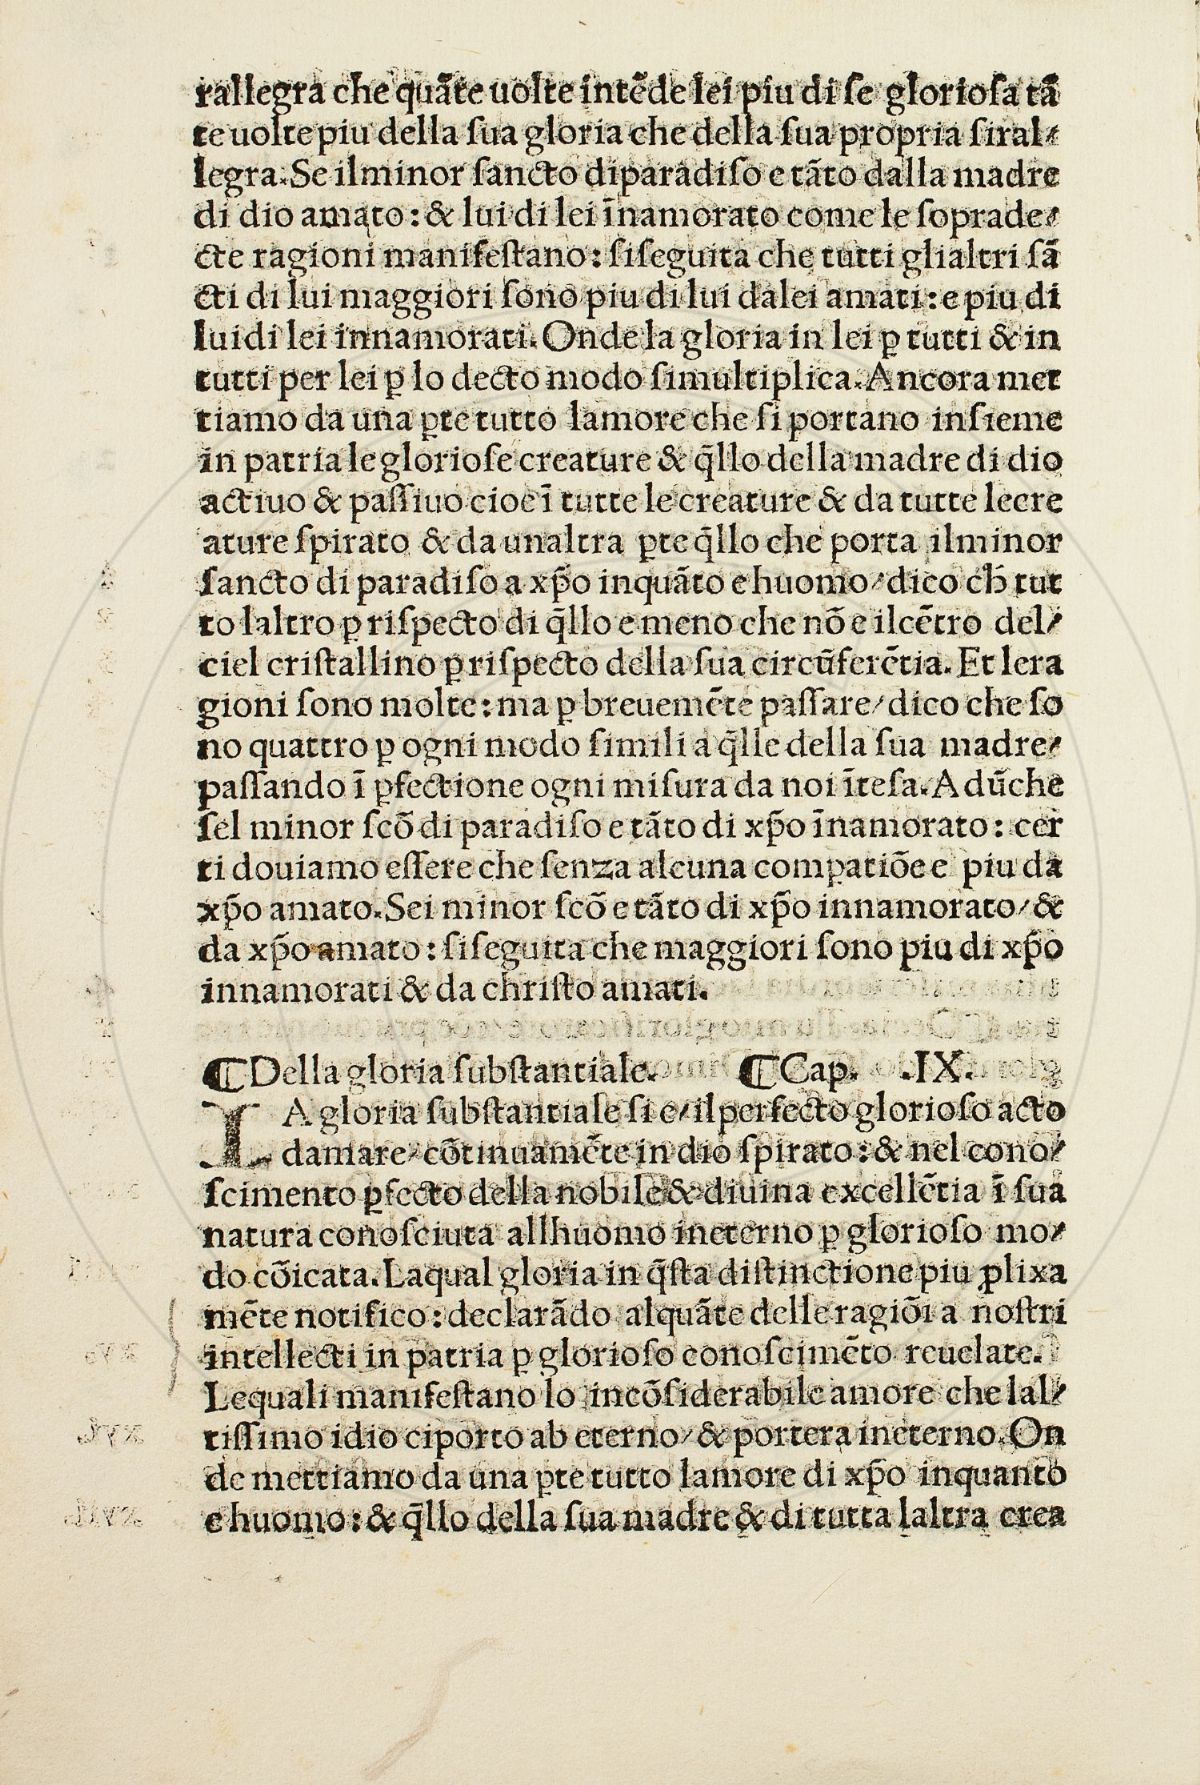 rallegra che quãte uolte intẽde lei piu di se gloriosa tã
te uolte piu della sua gloria che della sua propria siral⸗
legra. Se ilminor sancto diparadiso e tãto dalla madre
di dio amato: & lui di lei ĩnamorato come le soprade⸗
cte ragioni manifestano: siseguita che tutti glialtri sã
cti di lui maggiori sono piu di lui dalei amati: e piu di
luidi lei innamorati. Onde la gloria in lei ꝑ tutti & in
tutti per lei ꝑ lo decto modo simultiplica. Ancora met
tiamo da una ꝑte tutto lamore che si portano insieme
in patria le gloriose creature & q̃llo della madre di dio
actiuo & passiuo cioe ĩ tutte le creature & da tutte lecre
ature spirato & da unaltra ꝑte q̃llo che porta ilminor
sancto di paradiso a xp̃o inquãto e huomo/dico ch̃ tut
to laltro ꝑ rispecto di q̃llo e meno che nõ e ilcẽtro del⸗
ciel cristallino ꝑ rispecto della sua circũferẽtia. Et lera
gioni sono molte: ma ꝑ breuemẽte passare/dico che so
no quattro ꝑ ogni modo simili a q̃lle della sua madre⸗
passando ĩ ꝑfectione ogni misura da noi ĩtesa. A dũche
sel minor scõ di paradiso e tãto di xp̃o ĩnamorato: cer
ti douiamo essere che senza alcuna compatiõe e piu da
xp̃o amato. Sei minor scõ e tãto di xp̃o innamorato/&
da xp̃o amato: siseguita che maggiori sono piu di xp̃o
innamorati & da christo amati.
¶Della gloria substantiale. ¶Cap. .IX.
LA gloria substantiale si e/ilperfecto glorioso acto
damare/cõtinuamẽte in dio spirato: & nel cono⸗
scimento ꝑfecto della nobile & diuina excellẽtia ĩ sua
natura conosciuta allhuomo ineterno ꝑ glorioso mo⸗
do cõicata. Laqual gloria in q̃sta distinctione piu ꝓlixa
mẽte notifico: declarãdo alquãte delle ragiõi a nostri
intellecti in patria ꝑ glorioso conoscimẽto reuelate.
Lequali manifestano lo incõsiderabile amore che lal⸗
tissimo idio ciporto ab eterno/& portera ineterno. On
de mettiamo da una ꝑte tutto lamore di xp̃o inquanto
e huomo: & q̃llo della sua madre & di tutta laltra crea